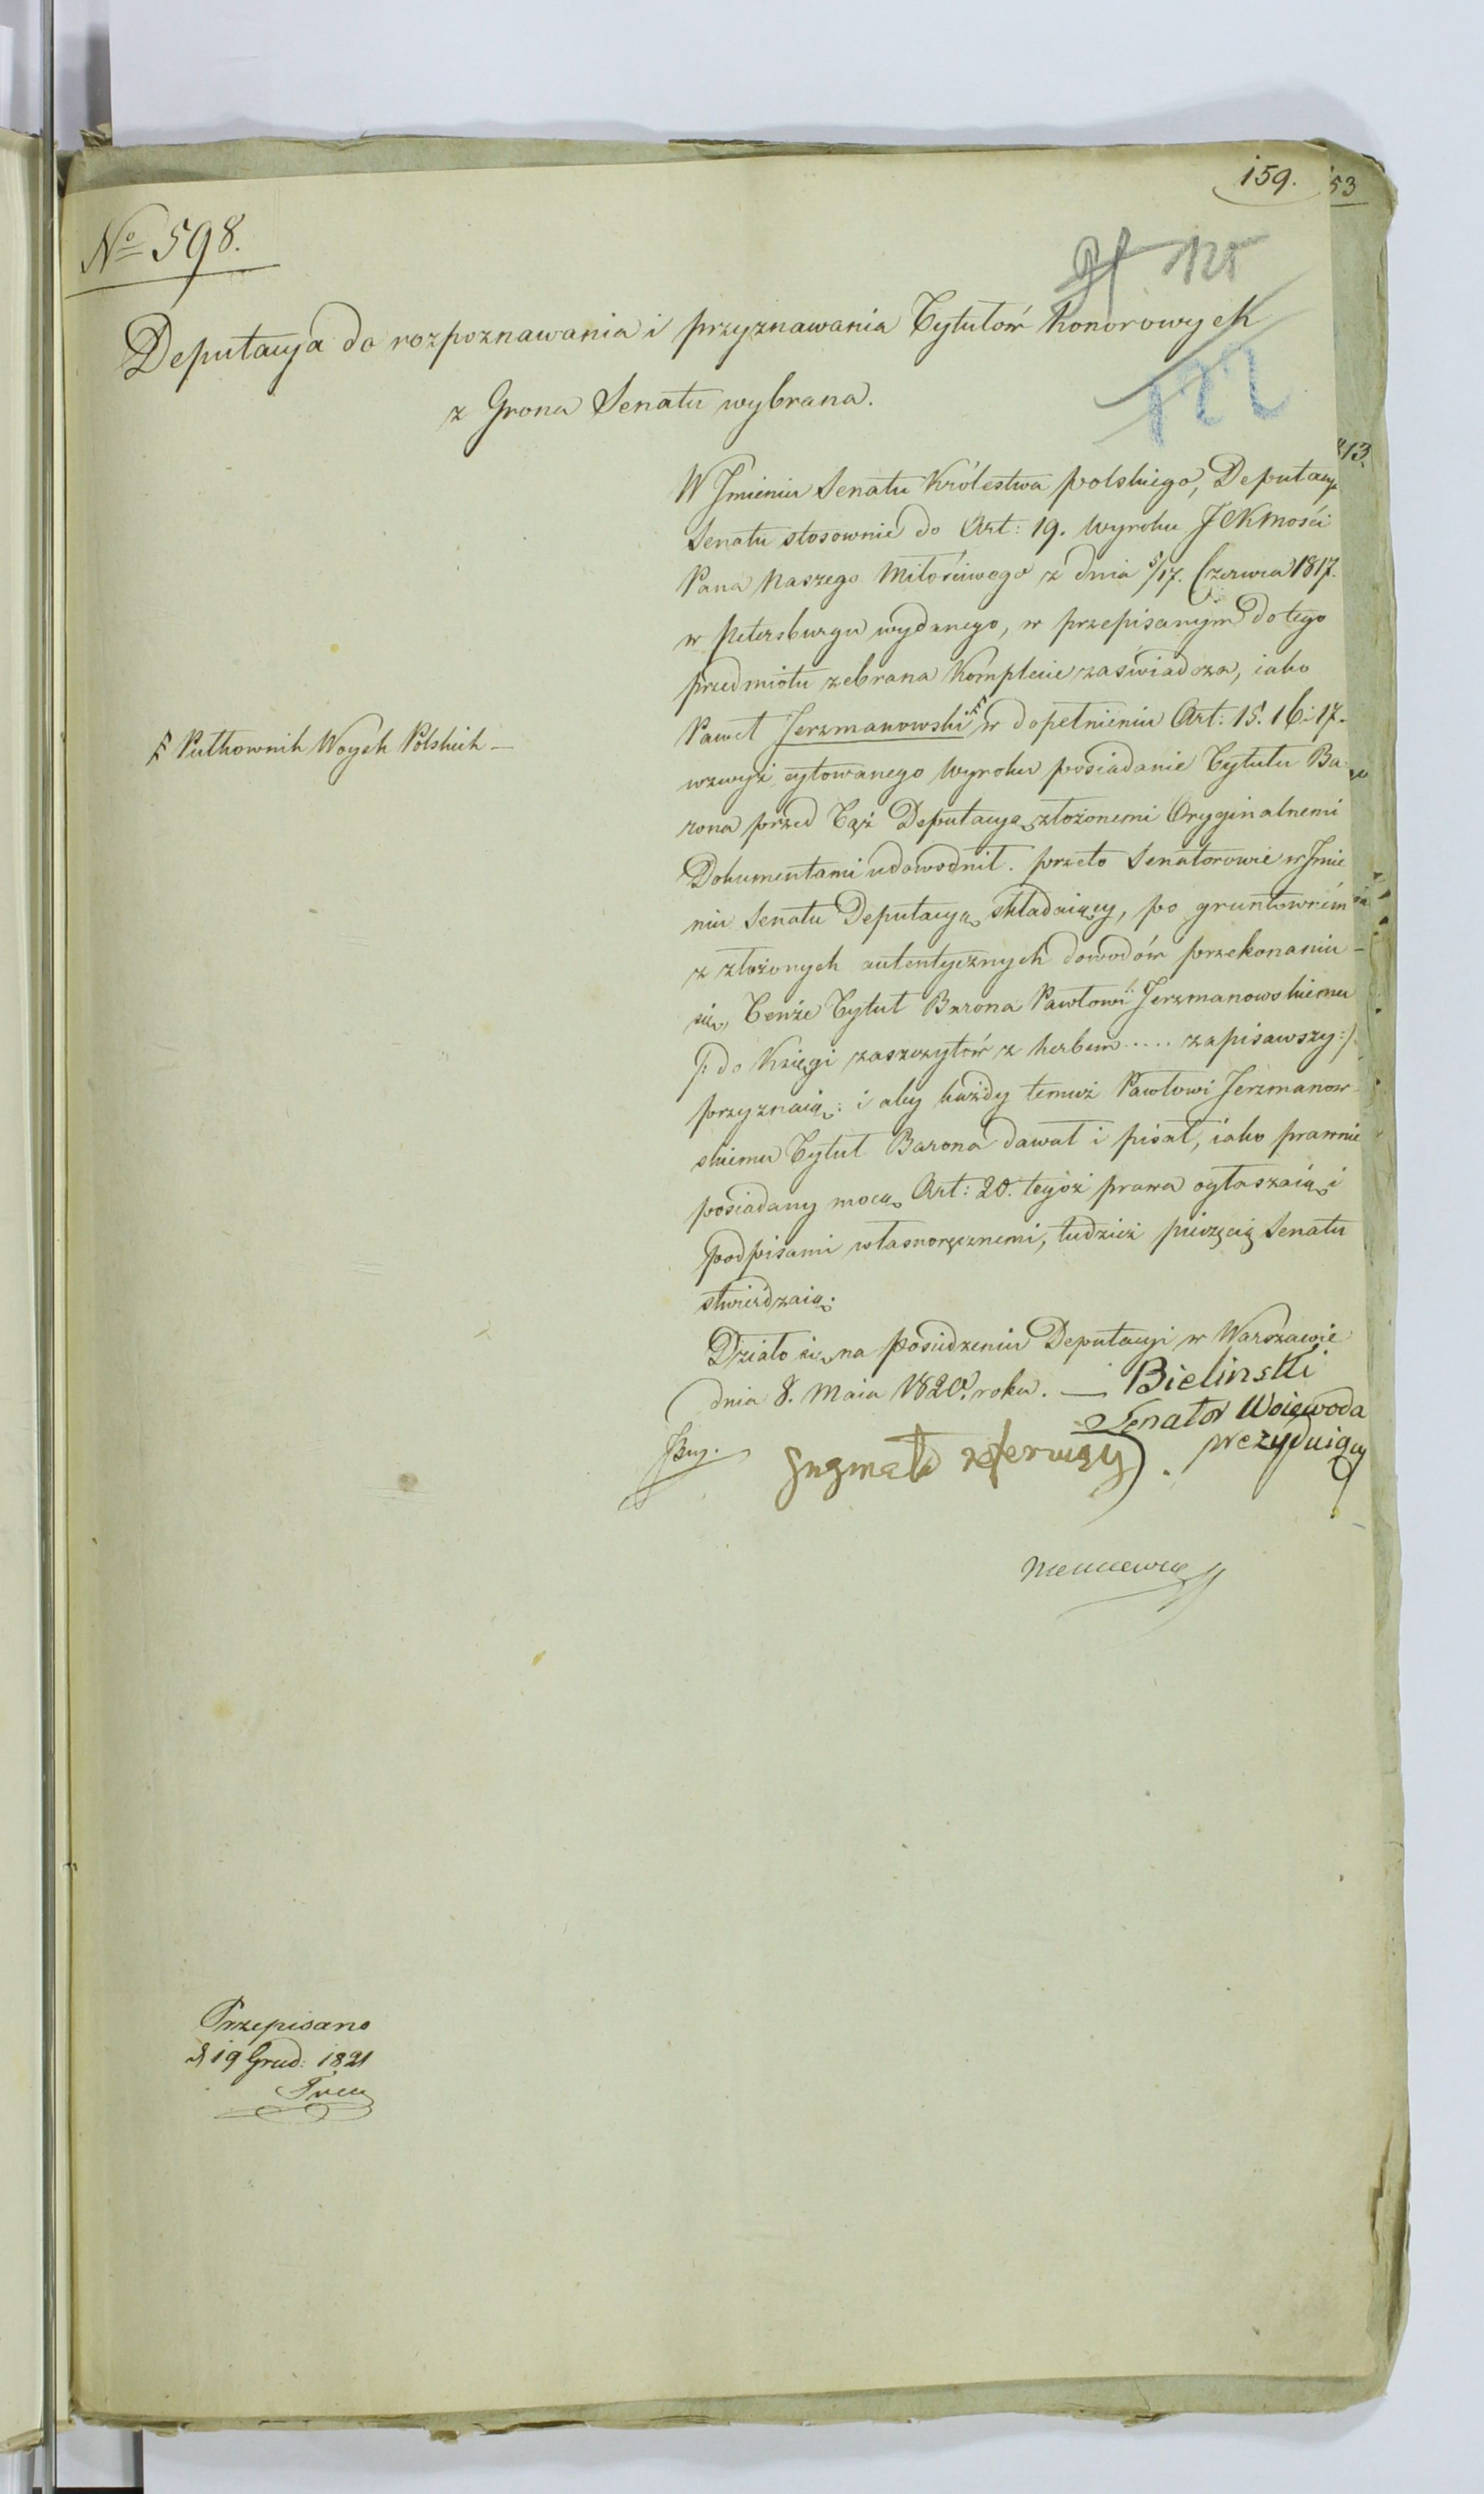 159.
53
No 598.
125
122
Deputacya do rozpoznawania i przyznawania Tytułów honorowych
z Grona Senatu wybrana.
W Jmieniu Senatu Królestwa polskiego, Deputacya
Senatu stosownie do Art: 19. Wyroku JCKMości
Pana Naszego Miłościwego z dnia 5/17. Czerwca 1817.
w Petersburgu wydanego, w przepisanym do tego
przedmiotu zebrana Komplecie zaswiadcza, iako
Paweł Jerzmanowski # w dopełnieniu Art: 15. 16: 17.
# Pułkownik Woysk Polskich —
wzwyż cytowanego Wyroku posiadanie Tytułu Ba-
rona przed Tąż Deputacyą złożonemi Oryginalnemi
Dokumentami udowodnił. przeto Senatorowie w Jmie
niu Senatu Deputacyą składaiący, po gruntowném
z złożonych autentycznych dowodów przekonaniu
się, Tenże Tytuł Barona Pawłowi Jerzmanowskiemu
/: do Księgi zaszczytów z herbem ..... zapisawszy :/
przyznaią: i aby każdy temuż Pawłowi Jerzmanow
skiemu Tytuł Barona dawał i pisał, iako prawnie
posiadany mocą Art: 20. tegoż prawa ogłaszaią i
podpisami własnoręcznemi, tudzież pieczęcią Senatu
stwierdzaią.
Działo się na posiedzeniu Deputacyi w Warszawie
dnia 8. Maia 1820. roku. — Bielinski
Senator Woiewoda
prezyduiący
Przepisano
d 19 Grud: 1821